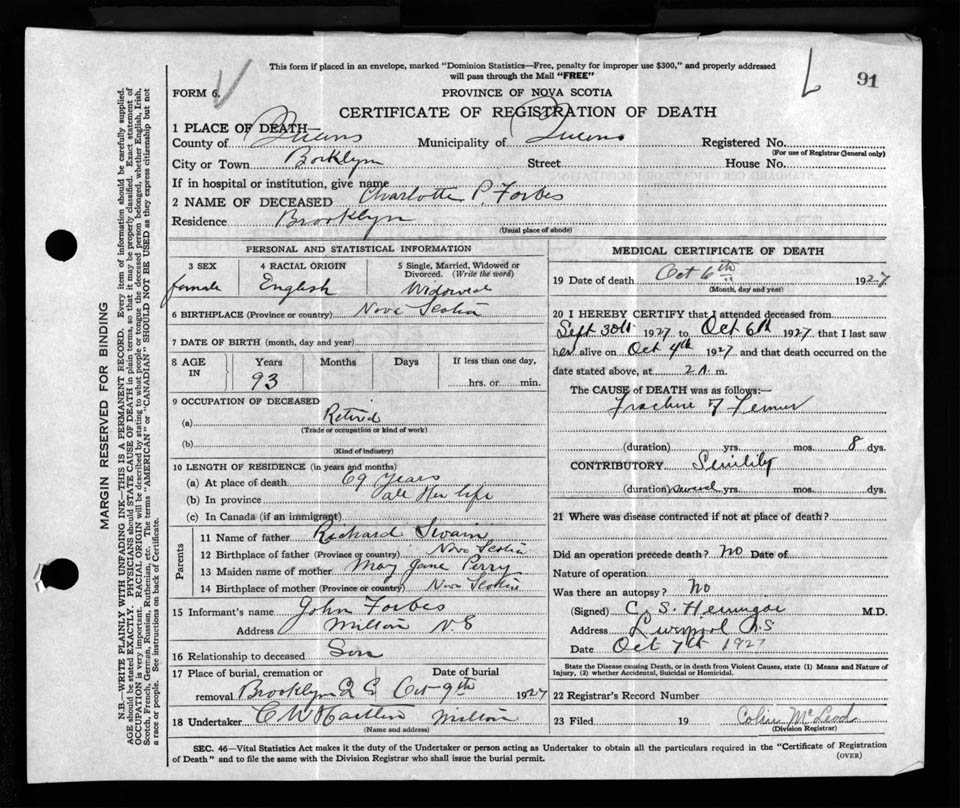 91
This form if placed in an envelope, marked "Dominion Statistics—Free, penalty for improper use $300," and properly addressed
will pass through the Mail "FREE"
FORM 6.
PROVINCE OF NOVA SCOTIA
CERTIFICATE OF REGISTRATION OF DEATH
1 PLACE OF DEATH
County of Queens Municipality of Queens Registered No.
(For use of Registrar General only)
City or Town Brooklyn Street House No.
If in hospital or institution, give name
2 NAME OF DECEASED Charlotte P. Forbes
Residence Brooklyn
(Usual place of abode)
MARGIN RESERVED FOR BINDING
N.B.—WRITE PLAINLY WITH UNFADING INK—THIS IS A PERMANENT RECORD. Every item of information should be carefully supplied.
AGE should be stated EXACTLY. PHYSICIANS should STATE CAUSE OF DEATH in plain terms, so that it may be properly classified. Exact statement of
OCCUPATION is very important. RACIAL ORIGIN will be described by stating to what people or tongue the deceased person belonged, whether English, Irish,
Scotch, French, German, Russian, Ruthenian, etc. The terms "AMERICAN" or "CANADIAN" SHOULD NOT BE USED as they express citizenship but not
a race or people. See instructions on back of Certificate.
PERSONAL AND STATISTICAL INFORMATION
3 SEX
female
4 RACIAL ORIGIN
English
5 Single, Married, Widowed or
Divorced. (Write the word)
Widowed
6 BIRTHPLACE (Province or country) Nova Scotia
7 DATE OF BIRTH (month, day and year)
8 AGE IN
Years Months Days If less than one day,
93 hrs. or min.
9 OCCUPATION OF DECEASED
(a) Retired
(Trade or occupation or kind of work)
(b)
(Kind of industry)
10 LENGTH OF RESIDENCE (in years and months)
(a) At place of death 69 years
(b) In province all Her life
(c) In Canada (if an immigrant)
Parents
11 Name of father Richard Swain
12 Birthplace of father (Province or country) Nova Scotia
13 Maiden name of mother Mary Jane Perry
14 Birthplace of mother (Province or country) Nova Scotia
15 Informant's name John Forbes
Address Milton N.S
16 Relationship to deceased Son
17 Place of burial, cremation or Date of burial
removal Brooklyn Q C Oct 9th 1927
18 Undertaker Milton
(Name and address)
MEDICAL CERTIFICATE OF DEATH
19 Date of death Oct 6th 1927
(Month, day and year)
20 I HEREBY CERTIFY that I attended deceased from
Sept 30th 1927 to Oct 6th 1927 that I last saw
her alive on Oct 4th 1927 and that death occurred on the
date stated above, at 2 m.
The CAUSE of DEATH was as follows:—
Fracture of Femur
(duration) yrs. mos. 8 dys.
CONTRIBUTORY Senility
(duration) several yrs. mos. dys.
21 Where was disease contracted if not at place of death?
Did an operation precede death? No Date of
Nature of operation
Was there an autopsy? No
(Signed) C. S. M.D.
Address Liverpool N.S
Date Oct 7th 1927
State the Disease causing Death, or in death from Violent Causes, state (1) Means and Nature of
Injury, (2) whether Accidental, Suicidal or Homicidal.
22 Registrar's Record Number
23 Filed 19 Colin McLeod
(Division Registrar)
SEC. 46—Vital Statistics Act makes it the duty of the Undertaker or person acting as Undertaker to obtain all the particulars required in the "Certificate of Registration
of Death" and to file the same with the Division Registrar who shall issue the burial permit.
(OVER)